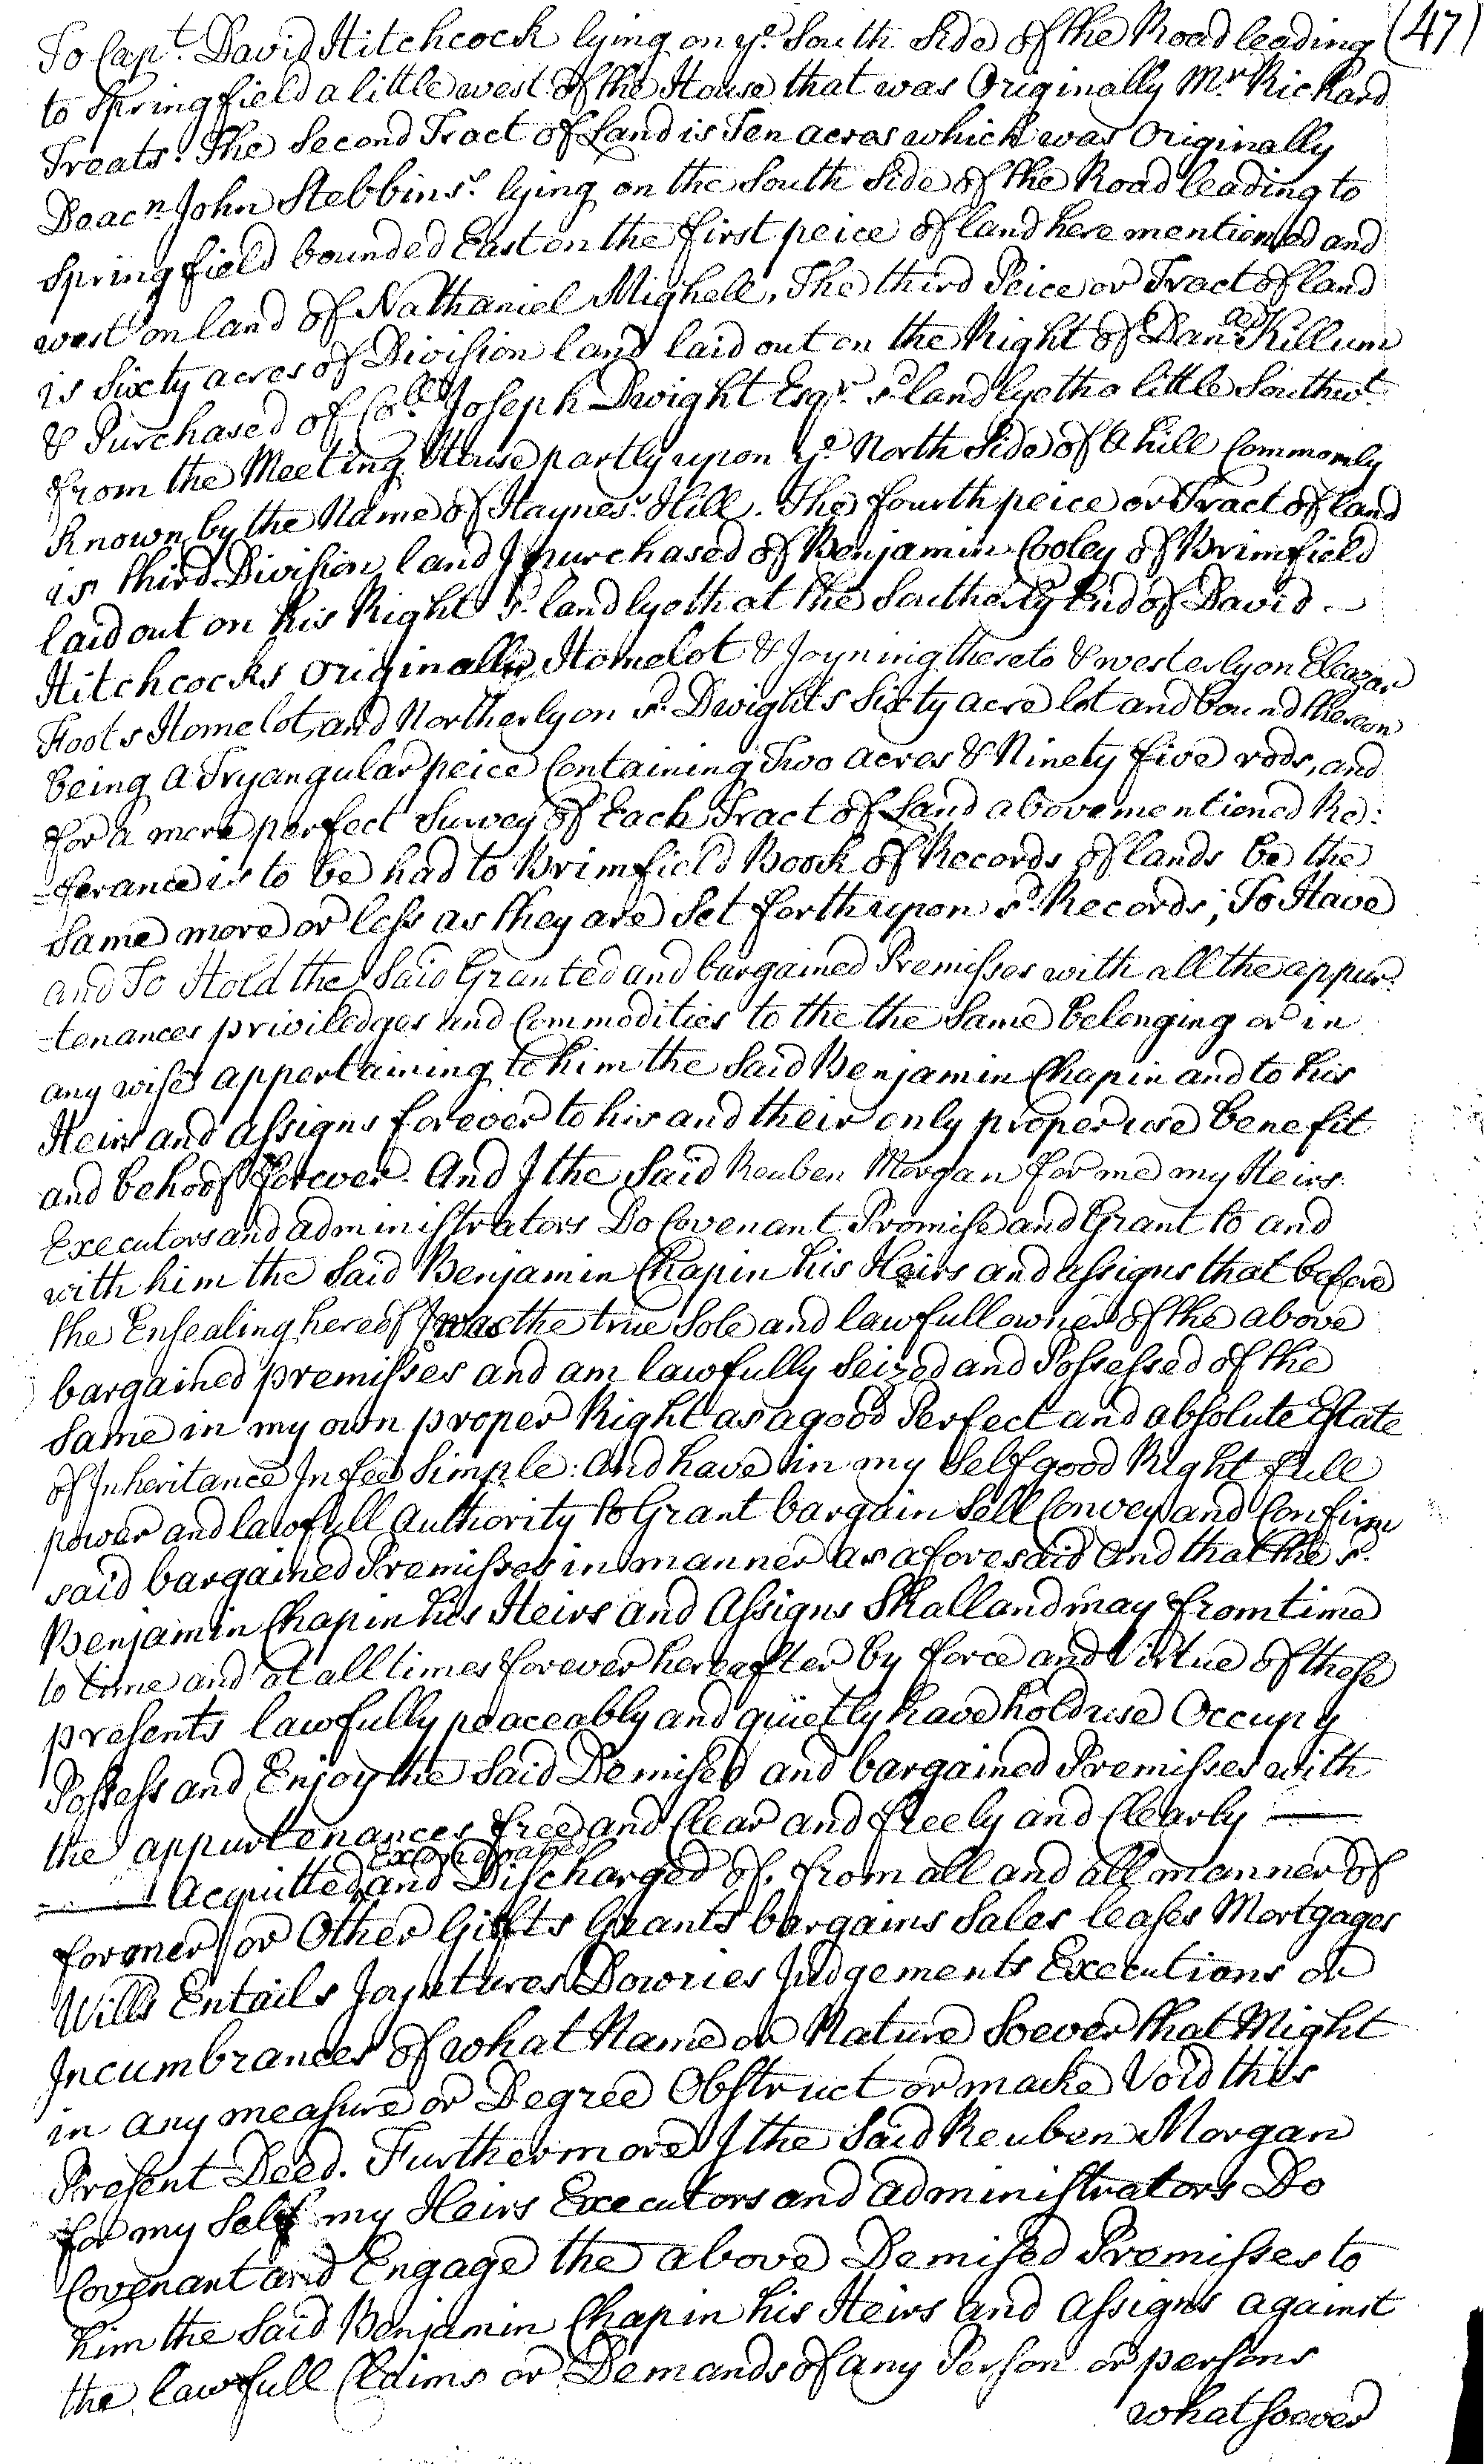 (47)
To Capt. David Hitchcock lying on ye. South Side of the Road leading
to Springfield a little west of the House that was Originally Mr. Richard
Treats. The Second Tract of Land is Ten acres which was Originally
Deacn. John Stebbins's. lying on the South Side of the Road leading to
Springfield bounded East on the first peice of land here mentioned and
west on land of Nathaniel Mighell, The third Peice or Tract of land
is Sixty acres of Division land laid out on the Right of Danll. Killum
& Purchased of Coll. Joseph Dwight Esqr. sd. land lyeth a little Southwt.
from the Meeting House partly upon ye. North Side of a hill Commonly
Known by the Name of Haynes's. Hill. The fourth peice or Tract of land
is third Division land I purchased of Benjamin Cooley of Brimfield
laid out on his Right sd. land lyeth at the Southerly End of David
Hitchcocks Originally Homelot & Joyning thereto & westerly on Eleazar
Foots Homelot, and Northerly on sd. Dwights Sixty acre lot and bound thereon
being a Tryangular peice Containing Two acres & Ninety five rods, and
for a more perfect Survey of Each Tract of Land above mentioned Re:
=ferance is to be had to Brimfield Book of Records of lands be the
Same more or less as they are Set forth upon sd. Records; To Have
and To Hold the Said Granted and bargained Premisses with all the appur:
-tenances priviledges and Commodities to the the Same belonging or in
any wise appertaining to him the Said Benjamin Chapin and to his
Heirs and assigns forever to his and their only proper use benefit
and behoof forever. And I the Said Reuben Morgan for me my Heirs
Executors and administrators Do Covenant Promise and Grant to and
with him the Said Benjamin Chapin his Heirs and assigns that before
the Ensealing hereof I was the true Sole and lawfull owner of the above
bargained premisses and am lawfully Seized and Possessed of the
Same in my own proper Right as a good Perfect and absolute Estate
of Inheritance In fee Simple: and have in my Self good Right full
power and lawfull authority to Grant bargain Sell Convey and Confirm
said bargained Premisses in manner as aforesaid and that the sd.
Benjamin Chapin his Heirs and Assigns Shall and may from time
to time and at all times forever hereafter by force and Virtue of these
presents lawfully peaceably and quietly have hold use Occupy
Possess and Enjoy the Said Demised and bargained Premisses with
the appurtenances free and Clear and freely and Clearly
Acquitted Exonerated and Discharged of, from all and all manner of
former or Other Gifts Grants bargains Sales leases Mortgages
Wills Entails Joyntures Dowries Judgements Executions or
Incumbrances of what Name or Nature Soever that Might
in any measure or Degree Obstruct or make Void this
Present Deed. Furthermore I the Said Reuben Morgan
for my Self my Heirs Executors and administrators Do
Covenant and Engage the above Demised Premisses to
him the Said Benjamin Chapin his Heirs and assigns against
the lawfull Claims or Demands of any Person or persons
whatsoever